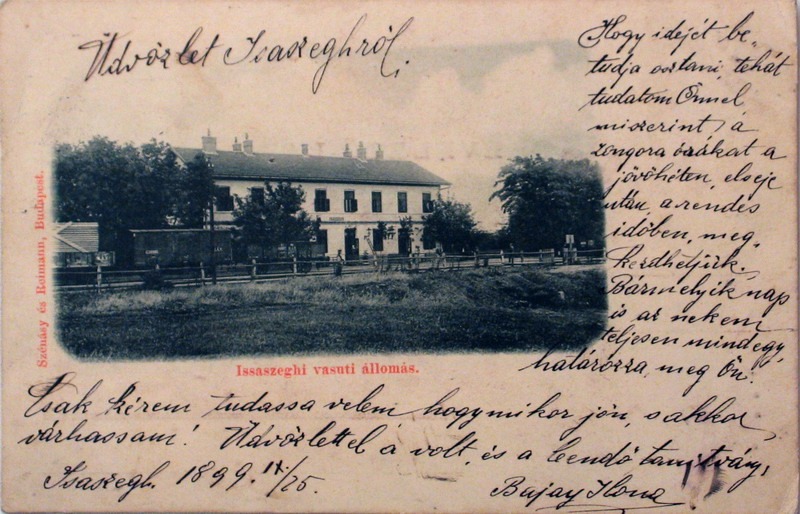 Üdvözlet Isaszeghről.
Hogy idejét be-
tudja osztani, tehát
tudatom Önnel
miszerint, a
zongora órákat a
jövőhéten, elseje
után, a rendes
időben, meg-
kezdhetjük.
Bármelyik nap
is az nekem
teljesen mindegy,
határozza meg Ön.
Szénásy és Reimann, Budapest.
Issaszeghi vasuti állomás.
Csak kérem tudassa velem hogy mikor jön, s akkor
várhassam! Üdvözlettel a volt, és a leendő tanítvány,
Isaszegh. 1899. IX/25.
Bajay Ilona